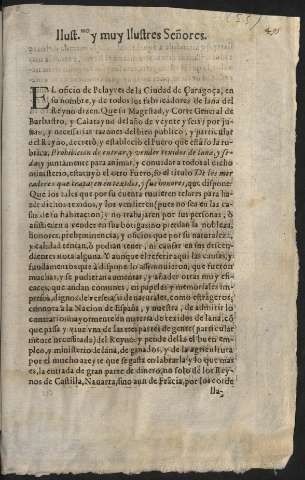 Ilust.mo y muy Ilustres Señores.
EL oficio de Pelayres de la Ciudad de Çaragoça, en
su nombre, y de todos los fabricadores de lana del
Reyno dizen. Que su Magestad, y Corte General de
Barbastro, y Calatayud del año de veynte y seis, por jus-
tas, y necessarias razones del bien publico, y particular
del Reyno, decretò, y establecio el Fuero que està so la ru-
brica, Prohibicion de entrar, y vender texidos de lana, y se-
da, y juntamente para animar, y conuidar a todos al dicho
ministerio, estatuyò el otro Fuero, so el titulo De los mer
caderes que tratan en texidos, y sus honores, que disponen:
Que los tales que por su cuenta tuuieren telares para
de dichos texidos, y los vendieren (pues no sea en las ca-
sas de su habitacion) y no trabajaren por sus personas, ò
assistieren a vender en sus botigas no pierdan la nobleza,
honores, preheminencia, y oficios que por su naturaleza,
y calidad tenian, ò podian tener, ni causar en sus descen-
dientes nota alguna. Y aunque el referir aqui las causas, y
fundamentos que à disponerlo assi mouieron, que fueron
muchas, y se pudieran aumentar, y añadir otras muy efi-
caces, que andan comunes, en papeles y memoriales im-
pressos, dignos de verse, assi de naturales, como estrãgeros,
conuoya a la Nacion de España, y nuestra, de admitir lo
contratiuo mayormente en materia de texidos de lana, cõ
que passa y viue vna de las tres partes de gente (particular
mente necessitada) del Reyno: y pende dellas el buen em-
pleo, y ministerio de lana, de ganados, y de la agricultura
por el mucho azeyte que se gasta en labrarla: y lo que mas
es, la entrada de gran parte de dinero, no solo de los Rey-
nos de Castilla, Nauarra, sino aun de Frãcia, por los corde
lla-